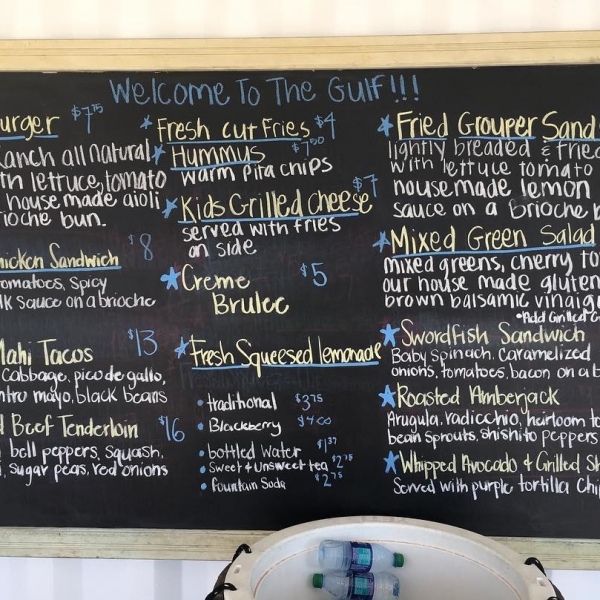 Welcome To The Gulf!!!
urger $7.75
Ranch all natural
th lettuce, tomato
house made aioli
rioche bun.
hicken Sandwich $8
tomatoes, spicy
lk sauce on a brioche
Mahi Tacos $13
cabbage, pico de gallo,
ntro mayo, black beans
d Beef Tenderloin $16
bell peppers, squash,
, sugar peas, red onions
Fresh cut Fries $4
Hummus $7.00
warm pita chips
Kids Grilled cheese $7
served with fries
on side
Creme $5
Brulee
Fresh Squeesed lemonade
• traditional $3.75
• Blackberry $4.00
• bottled water $1.87
• Sweet & Unsweet tea $2.75
• fountain Soda $2.75
Fried Grouper Sand
lightly breaded & fried
with lettuce tomato
house made lemon
sauce on a brioche b
Mixed Green Salad
mixed greens, cherry to
our house made gluten
brown balsamic vinaig
*Add Grilled C
Swordfish Sandwich
Baby spinach, caramelized
onions, tomatoes, bacon on a b
Roasted Amberjack
Arugula, radicchio, heirloom to
bean sprouts, shishito peppers
Whipped Avocado & Grilled Sh
Served with purple tortilla chip